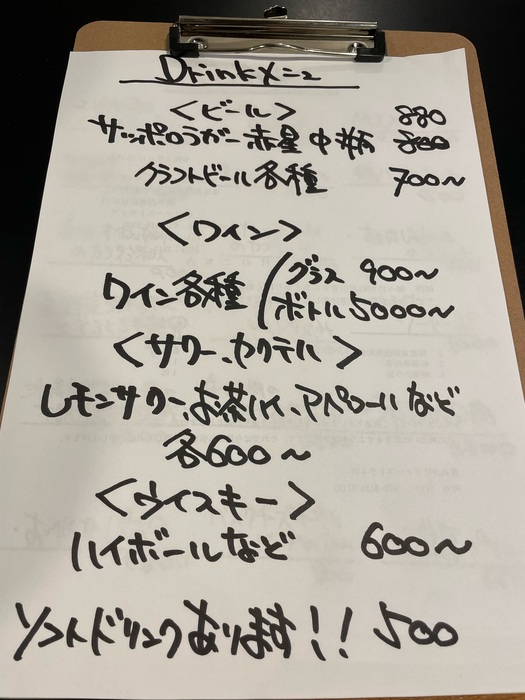 Drinkメニュ
<ビール>
880
サッポロラガー赤星 中瓶 800
クラフトビール各種 700~
<ワイン>
ワイン各種 / グラス 900~
ボトル 5000~
<サワー、カクテル>
レモンサワー、お茶ハイ、アペロールなど
各600~
<ウイスキー>
ハイボールなど 600~
ソフトドリンクあります!! 500